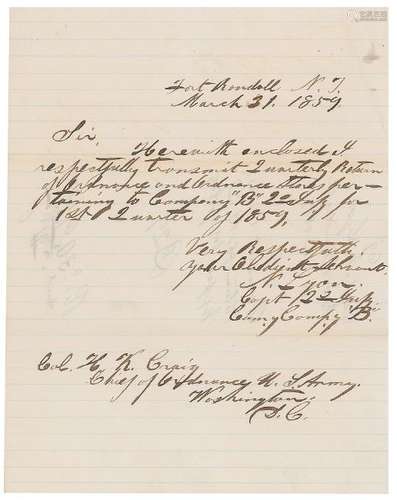 Fort Randall N. T.
March 31. 1859
Sir,
Herewith enclosed I
respectfully transmit Quarterly Return
of Ordnance and Ordnance Stores per-
taining to Company "B" 2d Inf for
1st Quarter of 1859.
Very Respectfully
your Obedient Servant
N. Lyon.
Capt 2d Inf
Comg Compy "B".
Col. H. K. Craig
Chief of Ordnance U. S Army.
Washington
D. C.